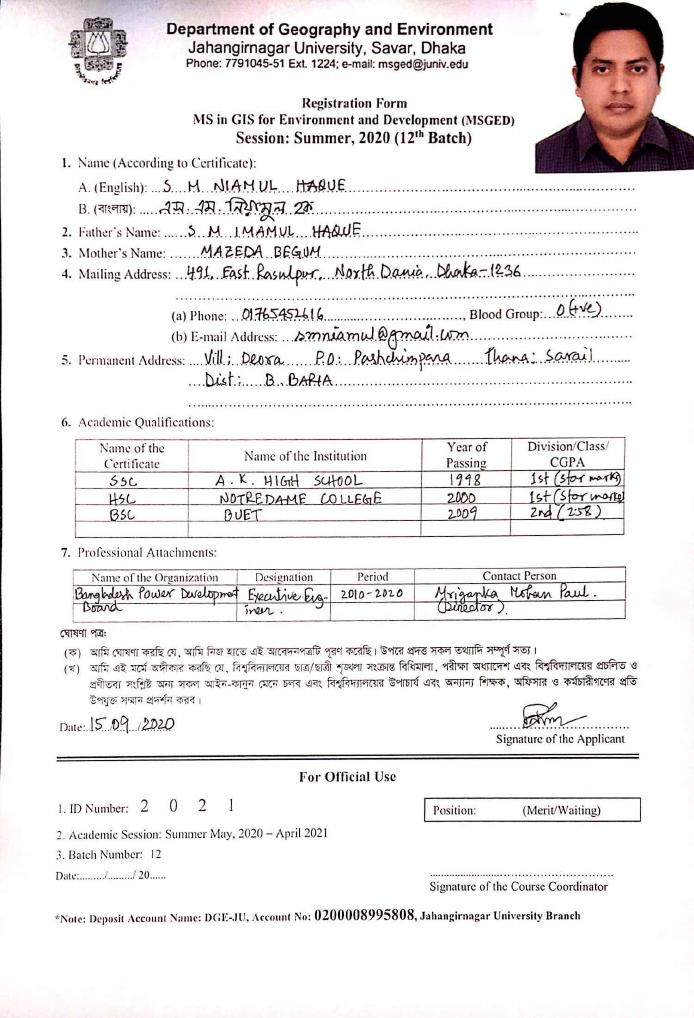 Department of Geography and Environment
Jahangirnagar University, Savar, Dhaka
Phone: 7791045-51 Ext. 1224; e-mail: msged@juniv.edu
Registration Form
MS in GIS for Environment and Development (MSGED)
Session: Summer, 2020 (12th Batch)
1. Name (According to Certificate):
A. (English): S M NIAMUL HAQUE
B. (বাংলায়): এস. এম. নিয়ামুল হক
2. Father's Name: S M IMAMUL HAQUE
3. Mother's Name: MAZEDA BEGUM
4. Mailing Address: 491, East Rasulpur, North Dania, Dhaka-1236
(a) Phone: 01765452616, Blood Group: O(+ve)
(b) E-mail Address: smniamul@gmail.com
5. Permanent Address: Vill: Deora P.O: Pashchimpara Thana: Sarail
Dist: B. BARIA
6. Academic Qualifications:
Name of the Certificate Name of the Institution Year of Passing Division/Class/ CGPA
SSC A. K. HIGH SCHOOL 1998 1st (star marks)
HSC NOTREDAME COLLEGE 2000 1st (star marks)
BSC BUET 2009 2nd (2.58)
7. Professional Attachments:
Name of the Organization Designation Period Contact Person
Bangladesh Power Development Board Executive Engineer. 2010-2020 Mriganka Mohan Paul. (Director).
ঘোষণা পত্র:
(ক) আমি ঘোষণা করছি যে, আমি নিজ হাতে এই আবেদনপত্রটি পূরণ করেছি। উপরে প্রদত্ত সকল তথ্যাদি সম্পূর্ণ সত্য।
(খ) আমি এই মর্মে অঙ্গীকার করছি যে, বিশ্ববিদ্যালয়ের ছাত্র/ছাত্রী শৃঙ্খলা সংক্রান্ত বিধিমালা, পরীক্ষা অধ্যাদেশ এবং বিশ্ববিদ্যালয়ের প্রচলিত ও
প্রণীতব্য সংশ্লিষ্ট অন্য সকল আইন-কানুন মেনে চলব এবং বিশ্ববিদ্যালয়ের উপাচার্য এবং অন্যান্য শিক্ষক, অফিসার ও কর্মচারীগণের প্রতি
উপযুক্ত সম্মান প্রদর্শন করব।
Date: 15/09/2020
Signature of the Applicant
For Official Use
1. ID Number: 2 0 2 1
Position: (Merit/Waiting)
2. Academic Session: Summer May, 2020 – April 2021
3. Batch Number: 12
Date:........./........./ 20......
Signature of the Course Coordinator
*Note: Deposit Account Name: DGE-JU, Account No: 0200008995808, Jahangirnagar University Branch